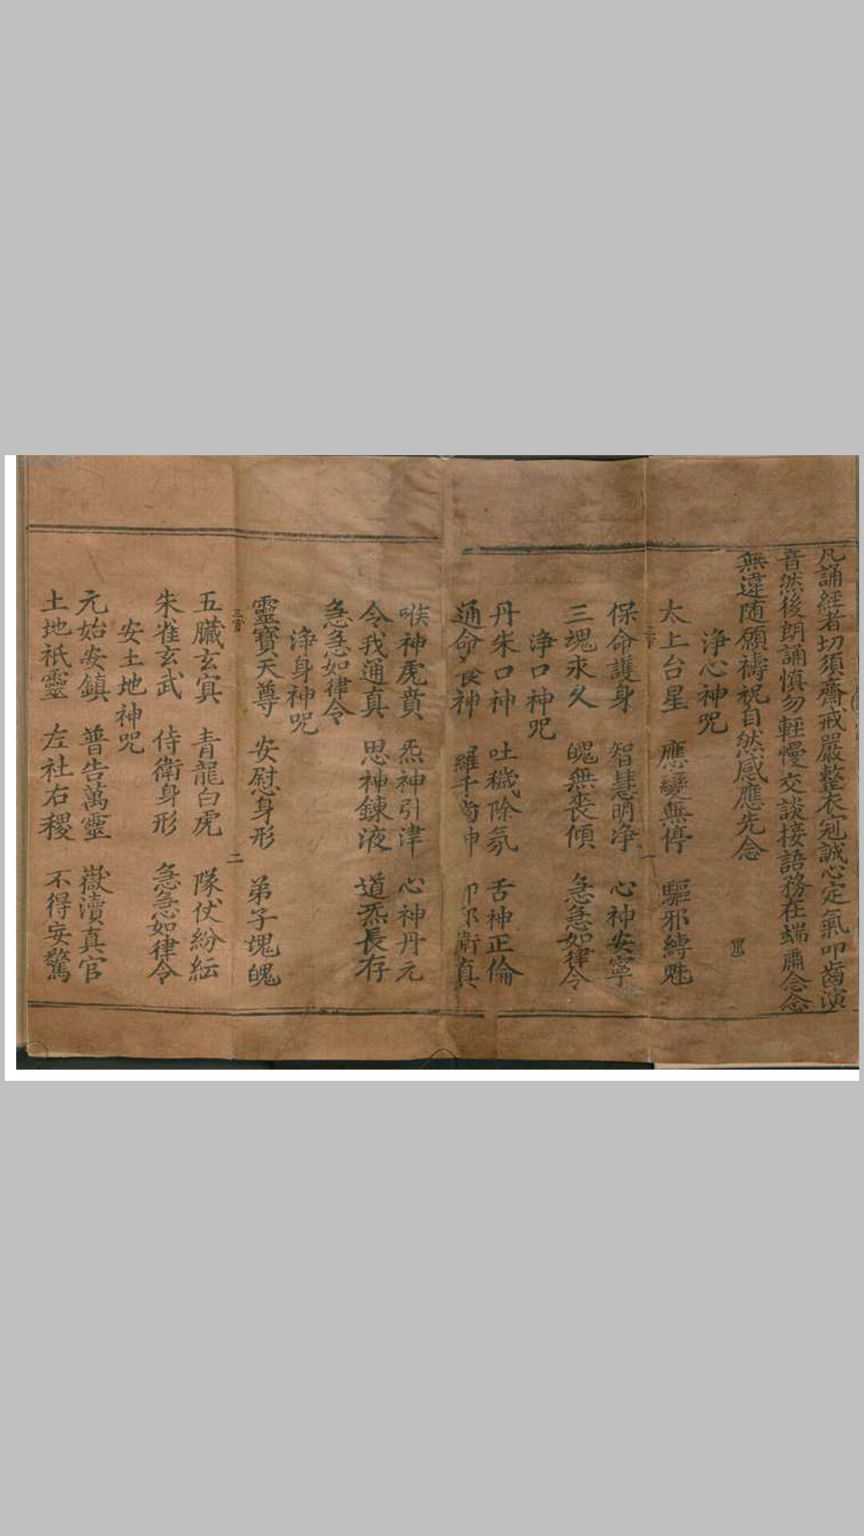 凡誦經者切須齋戒嚴整衣冠誠心定氣叩齒演
音然後朗誦慎勿輕慢交談接語務在端肅念念
無違随願禱祝自然感應先念
淨心神咒
太上台星 應變無停 驅邪縛魅
保命護身 智慧明净 心神安寧
三魂永久 魄無喪傾 急急如律令
净口神咒
丹朱口神 吐穢除氛 舌神正倫
通命養神 羅千齒神 却邪衛真
喉神虎賁 炁神引津 心神丹元
令我通真 思神鍊液 道炁長存
急急如律令
淨身神咒
靈寶天尊 安慰身形 弟子魂魄
三官 二
五臟玄冥 青龍白虎 隊仗紛紜
朱雀玄武 侍衛身形 急急如律令
安土地神咒
元始安鎮 普告萬靈 嶽瀆真官
土地祇靈 左社右稷 不得妄驚